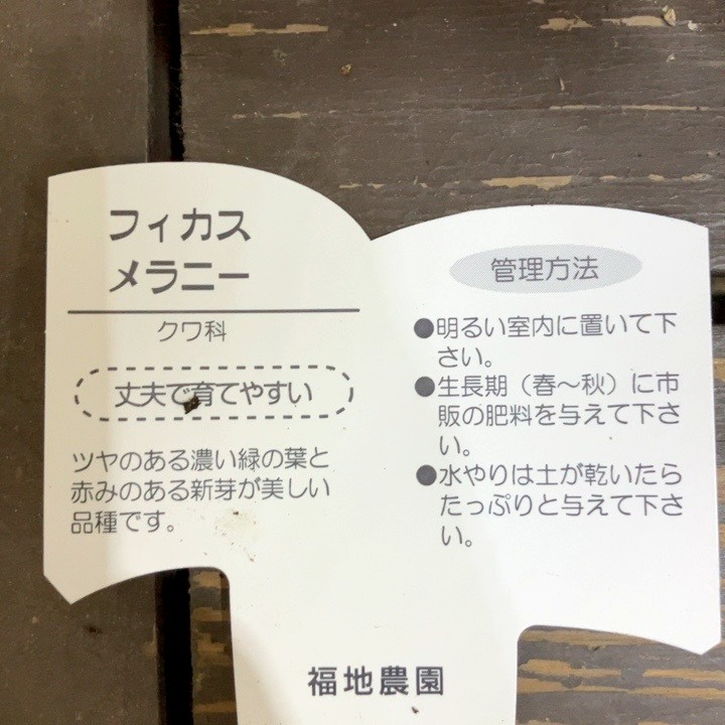 フィカス
メラニー
クワ科
丈夫で育てやすい
ツヤのある濃い緑の葉と
赤みのある新芽が美しい
品種です。
管理方法
●明るい室内に置いて下
さい。
●生長期（春～秋）に市
販の肥料を与えて下さ
い。
●水やりは土が乾いたら
たっぷりと与えて下さ
い。
福地農園